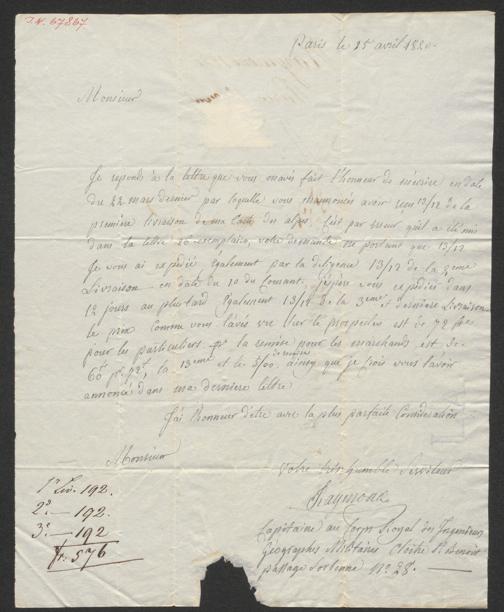 I.N. 67867
Paris le 25 avril 1820.
Monsieur
Je reponds à la lettre que vous m'avés fait l'honneur de m'écrire en date
du 22 mars dernier par laquelle vous m'annonces avoir reçu 13/12 de la
première livraison de ma Carte des alpes. C'est par erreur qu'il a été mis
dans la lettre exemplaires, votre demande ne portant que 13/12
Je vous ai expédié également par la diligence 13/12 de la 2eme
Livraison en date du 10 du Courant. J'espère vous expédier dans
12 jours au plus tard également 13/12 de la 3eme et derniere Livraison
le prix Comme vous l'avés vu sur le prospectus est de 72 fcs
pour les particuliers, la remise pour les marchands est de
60 la 13eme et le 5/00 ainsy que je crois vous l'avoir
annoncé dans ma derniere lettre
J'ai l'honneur d'etre avec la plus parfaite Consideration
Monsieur
Votre très humble Serviteur
Raymond
Capitaine au Corps Royal des Ingenieurs
Géographes Militaires Cloitre St Benoit
passage Sorbonne No. 28.
1e Liv. 192.
2e — 192.
3e — 192
fr. 576